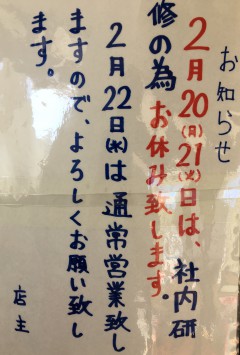 お知らせ
2月20(月)21(火)日は、社内研
修の為 お休み致します。
2月22日(水)は通常営業致し
ますので、よろしくお願い致し
ます。
店主